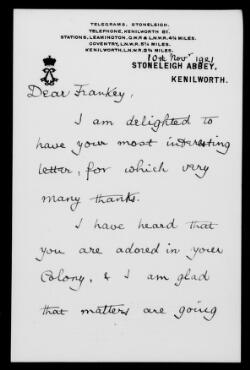 TELEGRAMS, STONELEIGH.
TELEPHONE, KENILWORTH 81.
STATIONS, LEAMINGTON, G.W.R & L.N.W.R. 4¾ MILES.
COVENTRY, L.N.W.R. 5¼ MILES.
KENILWORTH, L.N.W.R. 3¼ MILES.
10th Novr 1921
STONELEIGH ABBEY,
KENILWORTH.
Dear Frankey,
I am delighted to
have your most interesting
letter, for which very
many thanks.
I have heard that
you are adored in your
Colony, & I am glad
that matters are going